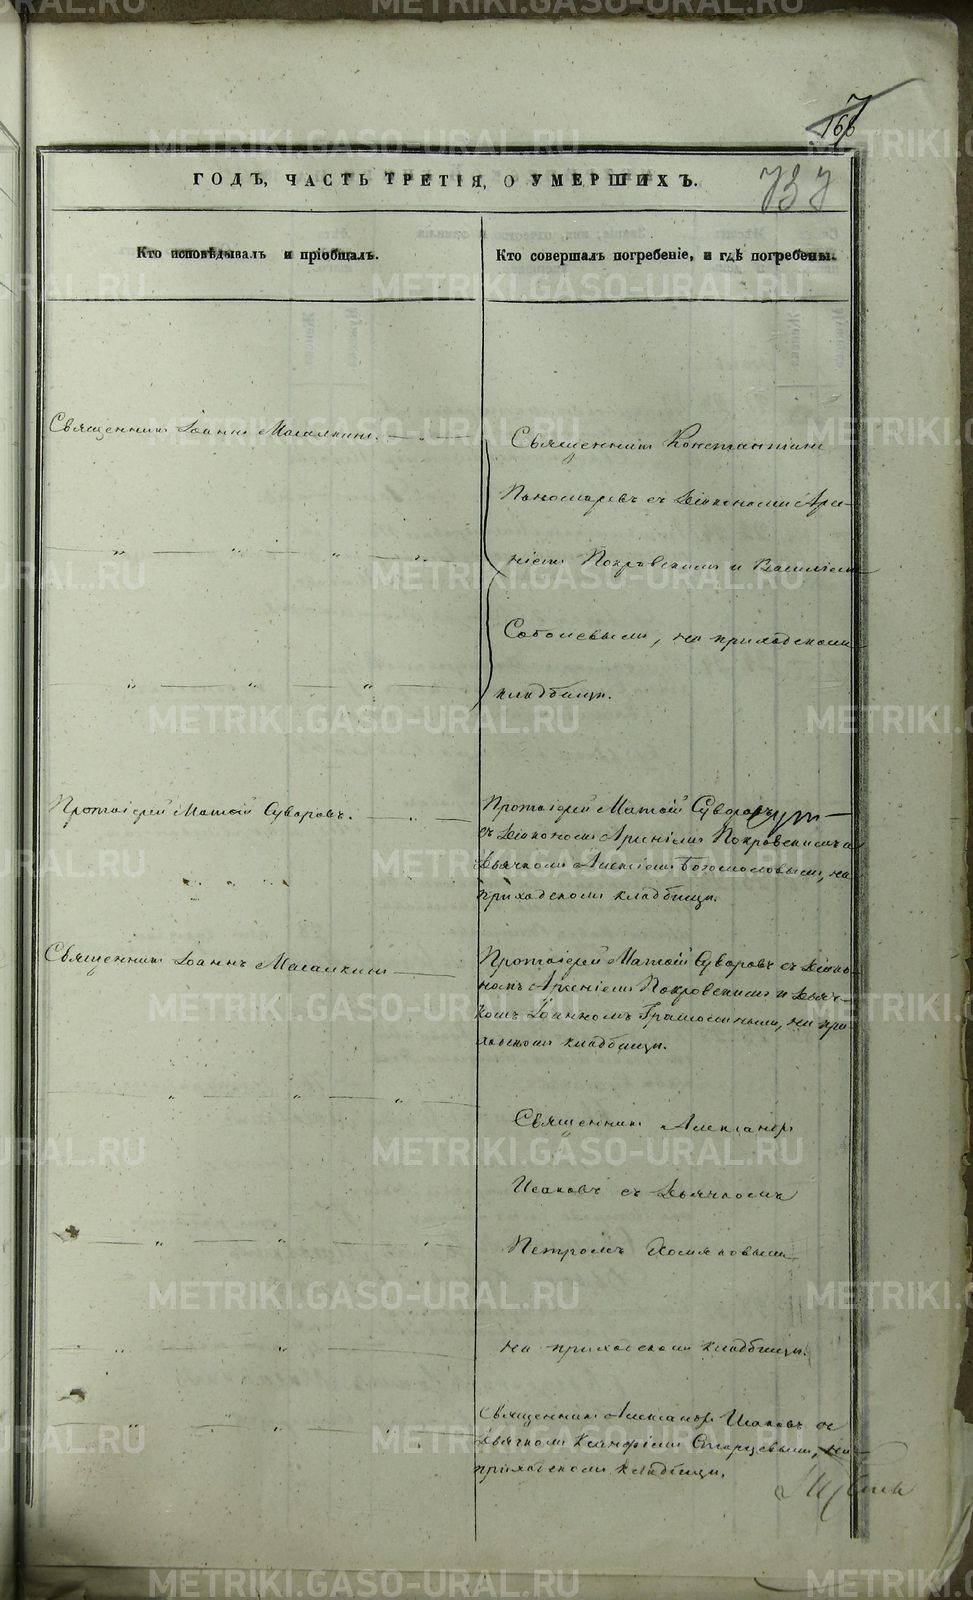 METRIKI.GASO-URAL.RU
168
737
ГОДЪ, ЧАСТЬ ТРЕТІЯ, О УМЕРШИХЪ.
Кто исповѣдывалъ и пріобщалъ.
Кто совершалъ погребеніе, и гдѣ погребены.
Священникъ Іоаннъ
Священникъ Константинъ
Пономаревъ съ Діакономъ Арсе-
ніемъ Покровскимъ и Василіемъ
Соболевымъ, на приходскомъ
кладбищѣ.
Протоіерей Матѳій Суворовъ.
Протоіерей Матѳій Суворовъ
съ Діакономъ Арсеніемъ Покровскимъ и
Дьячкомъ Алексіемъ Богословымъ, на
приходскомъ кладбищѣ.
Священникъ Іоаннъ
Протоіерей Матѳій Суворовъ съ Діако-
номъ Арсеніемъ Покровскимъ и Дьяч-
комъ Іоанномъ на при-
ходскомъ кладбищѣ.
Священникъ Александръ
Исаковъ съ Дьячкомъ
Петромъ Хомяковымъ
на приходскомъ кладбищѣ.
Священникъ Александръ Исаковъ съ
Дьячкомъ Старцевымъ, на
приходскомъ кладбищѣ.